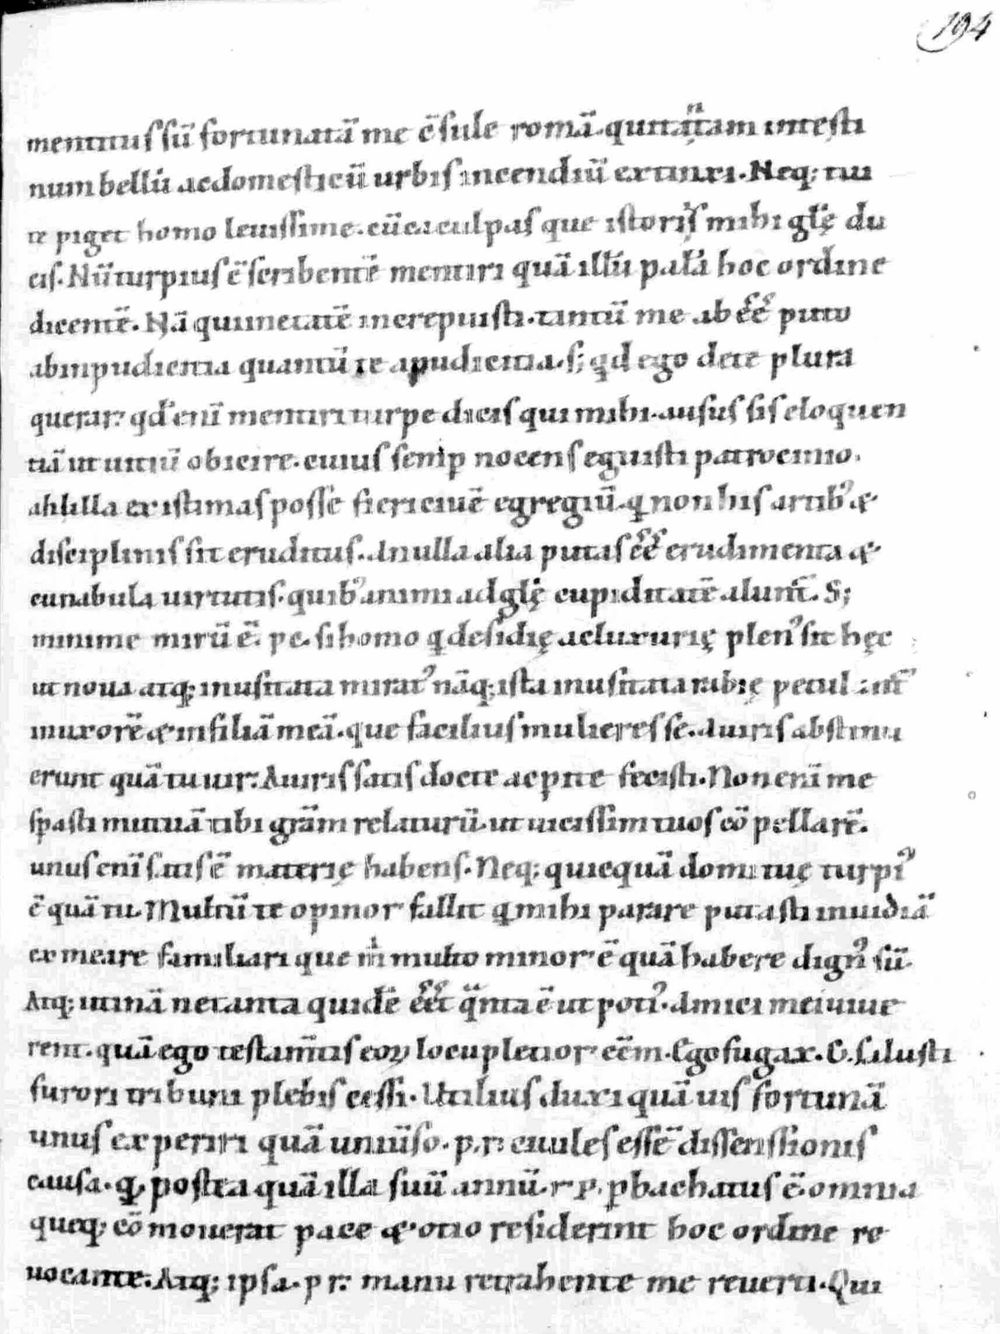 194
mentitus sū fortunatā me c̄sule romā. qui tātam intesti
num bellū ac domesticū urbis incendiū extinxi. Neq; tui
te piget homo leuissime. cū ea culpas que istoriis mihi glę du
cis. Nū turpius ē scribentē mentiri quā illū palā hoc ordine
dicentē. Nā qui in etatē increpuisti. tantū me ab eē puto
ab inpudicitia quantū te a pudicitia. s; qd ego de te plura
querar? qd enī mentiri turpe dicis qui mihi. ausus sis eloquen
tiā ut uitiū obicire. cuius semp nocens eguisti patrocinio.
ah illa existimas posse fieri ciuē egregiū. q non his artib; &
disciplinis sit eruditus. An ulla alia putas eē erudimenta &
cunabula uirtutis. quib; animi ad glę cupiditatē alunt̄. S;
minime mirū ē. p c. si homo q desidię ac luxurię plen' sit hęc
ut noua atq; inusitata mirat' nāq; ista inusitata rabię petulant'
in uxorē & in filiā meā. que facilius mulieres se. a uiris abstinu
erunt quā tu uir: A uiris satis docte ac pite fecisti. Non enī me
spasti mutuā tibi grām relaturū. ut uicissim tuos cō pellarē.
unus enī satis ē materię habens. Neq; quicquā domi tuę turpi'
ē quā tu. Multū te opinor fallit q mihi parare putasti inuidiā
ex mea re familiari que m̄ multo minor ē quā habere dign' sū.
Atq; utinā ne tanta quidē eēt q̄nta ē ut poti'. Amici mei uiue
rent. quā ego testam̄tis eoꝝ locupletior eēm. Ego fugax. C. salusti
furori tribuni plebis cessi. Utilius duxi quā uis fortunā
unus experiri quā uniūso. p. r. ciuiles essē dissensionis
causa. q postea quā illa suū annū. r p. p bachatus ē. omnia
queq; cō mouerat pace & otio resider̄int hoc ordine re
uocante. Atq; ipsa. p r: manu retrahente me reuerti. Qui